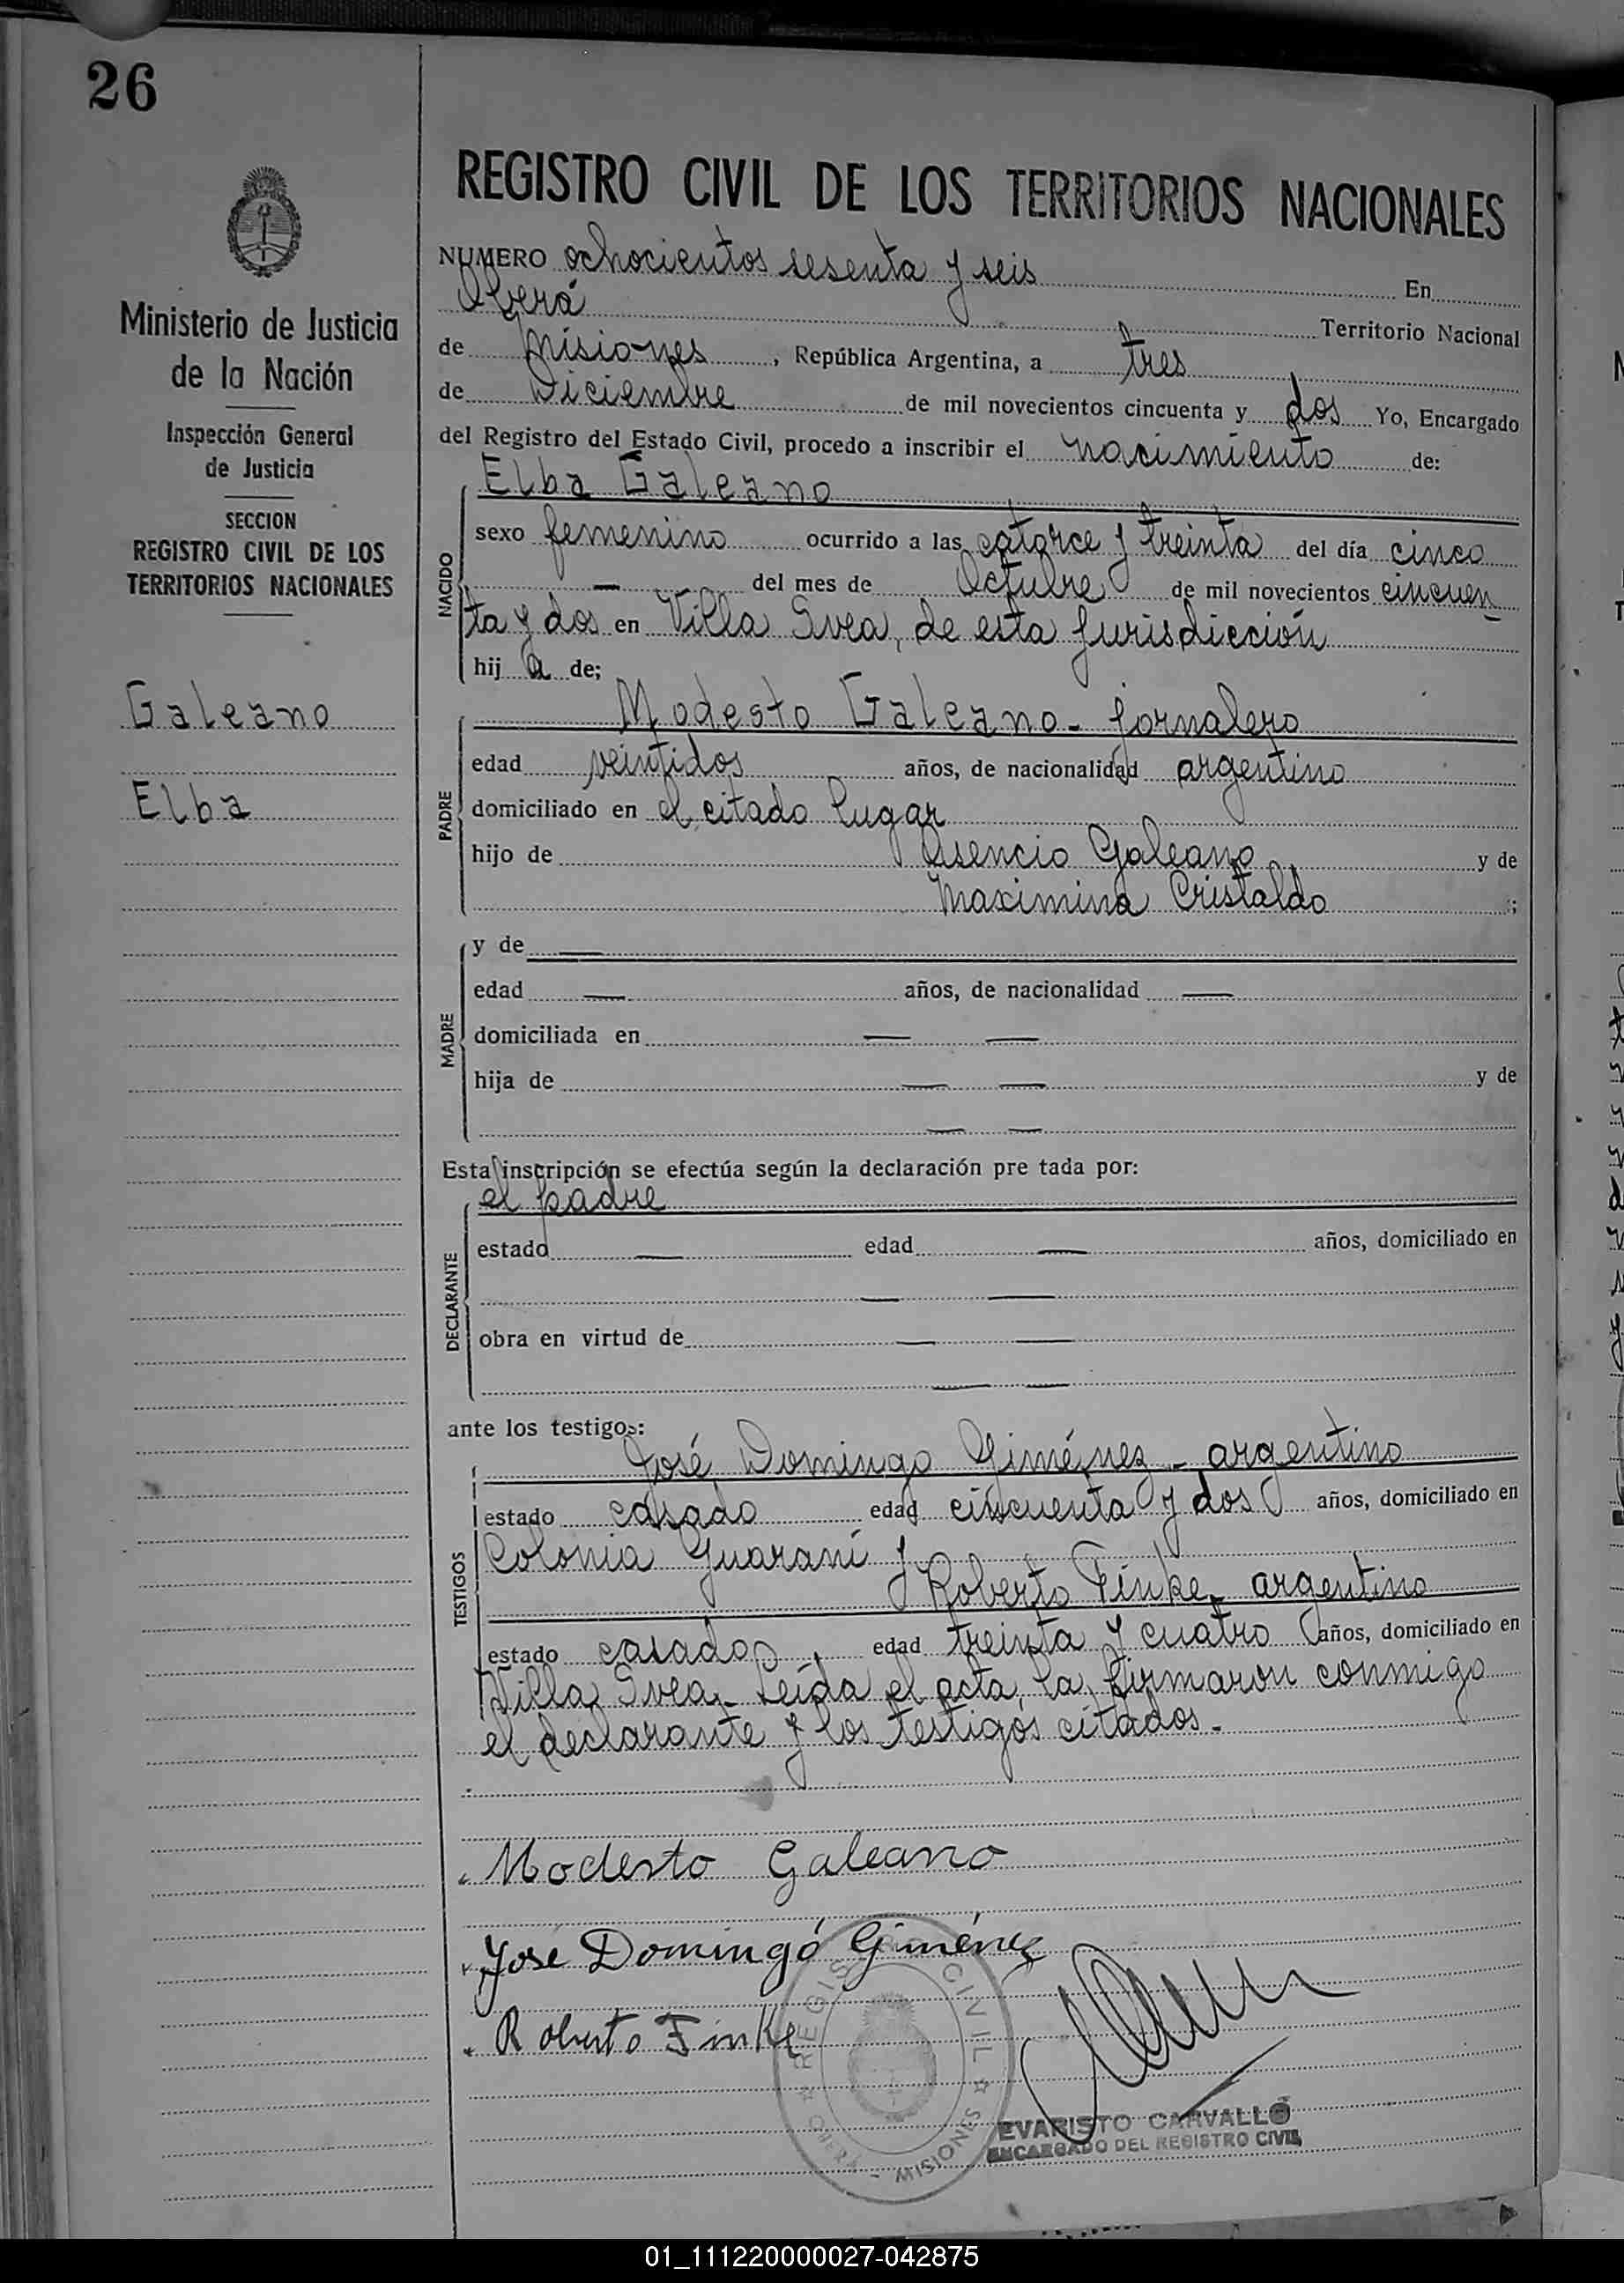 26
REGISTRO CIVIL DE LOS TERRITORIOS NACIONALES
NUMERO ochocientos sesenta y seis En
Oberá Territorio Nacional
de Misiones, República Argentina, a tres
de Diciembre de mil novecientos cincuenta y dos Yo, Encargado
del Registro del Estado Civil, procedo a inscribir el nacimiento de:
Elba Galeano
sexo femenino ocurrido a las catorce y treinta del día cinco
— del mes de Octubre de mil novecientos cincuen-
ta y dos en Villa Svea, de esta jurisdicción
hij a de;
NACIDO
Modesto Galeano - jornalero
edad veintidos años, de nacionalidad argentino
domiciliado en el citado lugar
hijo de Asencio Galeano y de
Maximina Cristaldo ;
PADRE
y de —
edad — años, de nacionalidad —
domiciliada en — —
hija de — — y de
— —
MADRE
Esta inscripción se efectúa según la declaración pre tada por:
el padre
estado — edad — años, domiciliado en
— —
obra en virtud de — —
— —
DECLARANTE
ante los testigos:
José Domingo Giménez - argentino
estado casado edad cincuenta y dos años, domiciliado en
Colonia Guaraní y
Roberto Finke, argentino
estado casado, edad treinta y cuatro años, domiciliado en
Villa Svea,- Leída el acta, la firmaron conmigo
el declarante y los testigos citados.-
TESTIGOS
Modesto Galeano
José Domingó Giménez
Roberto Finke
REGISTRO CIVIL
OBERÁ - MISIONES
EVARISTO CARVALLO
ENCARGADO DEL REGISTRO CIVIL
Ministerio de Justicia
de la Nación
Inspección General
de Justicia
SECCION
REGISTRO CIVIL DE LOS
TERRITORIOS NACIONALES
Galeano
Elba
01_111220000027-042875